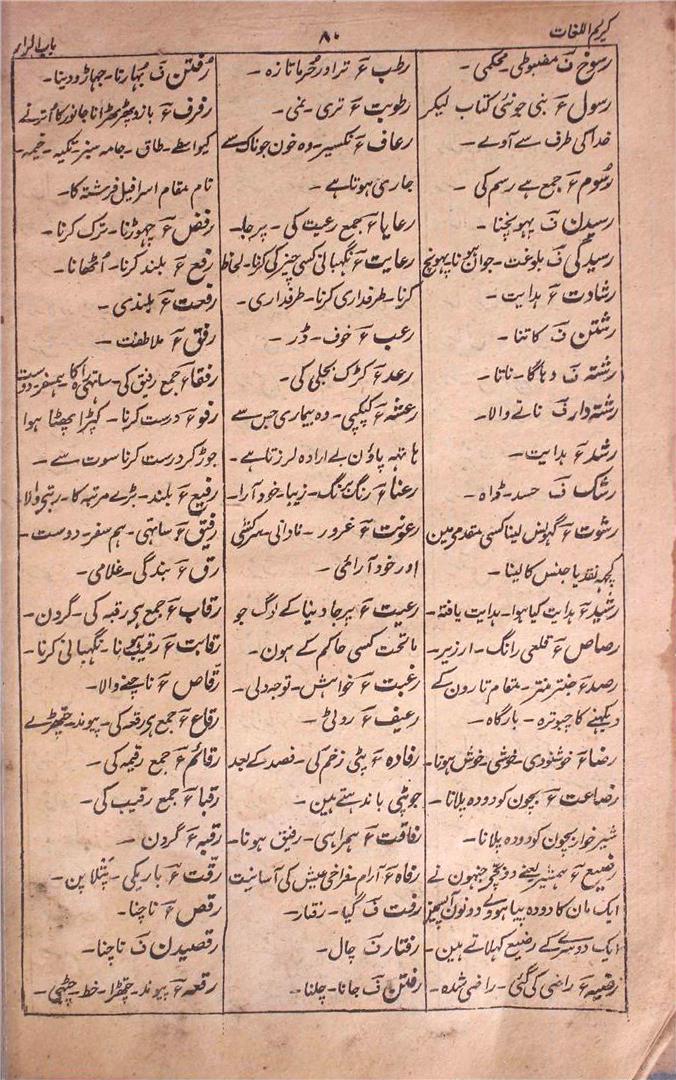 کریم اللغات
۸۰
باب الرار
رسوخ فَ مضبوطی ۔ محکمی ۔
رسول عَ بنی جو نئی کتاب لیکر
خدا کی طرف سے آوے ۔
رسوم عَ جمع ہے رسم کی ۔
رسیدن فَ پہونچنا ۔
رسیدگی فَ بلوغت ۔ جوان ہونا پہونچ
رشادت عَ ہدایت ۔
رشتن فَ کاتنا ۔
رشتہ فَ دہاگا ۔ ناتا ۔
رشتہ دار فَ ناتے والا ۔
رشد عَ ہدایت ۔
رشک فَ حسد ۔ ڈاہ ۔
رشوت عَ گہونس لینا کسی مقدمی مین
کچہہ نقد یا جنس کا لینا ۔
رشید عَ ہدایت کیا ہوا ۔ ہدایت یافتہ ۔
رصاص عَ قلعی رانگ ۔ ارزیز ۔
رصد عَ جنتر منتر ۔ مقام تارون کے
دیکہنے کا چبوترہ ۔ بارگاہ ۔
رضا عَ خوشنودی ۔ خوشی ۔ خوش ہونا ۔
رضاعت عَ بچون کو دودہ پلانا ۔
شیر خوار بچون کو دودہ پلانا ۔
رضیع عَ ہمشیر یعنے دو بچے جنہون نے
ایک مان کا دودہ پیا ہووے دونون آپسمین
ایک دوسرے کے رضیع کہلاتے ہین ۔
رضیہ عَ راضی کی گئی ۔ راضی شدہ ۔
رطب عَ تر اور خرما تازہ ۔
رطوبت عَ تری ۔ نمی ۔
رعاف عَ نکسیر ۔ وہ خون جو ناک سے
جاری ہوتا ہے ۔
رعایا عَ جمع رعیت کی ۔ پرجا ۔
رعایت عَ نگہبانی کسی چیز کی کرنا ۔ لحاظ
کرنا ۔ طرفداری کرنا ۔ طرفداری ۔
رعب عَ خوف ۔ ڈر ۔
رعد عَ کڑک بجلی کی ۔
رعشہ عَ کپکپی ۔ وہ بیماری جس سے
ہاتہہ پاؤن بے ارادہ لرزتا ہے ۔
رعنا عَ رنگ برنگ ۔ زیبا ۔ خود آرا ۔
رعونت عَ غرور ۔ نادانی ۔ سرکشی
اور خود آرائی ۔
رعیت عَ پرجا دینا کے لوگ جو
ماتحت کسی حاکم کے ہون ۔
رغبت عَ خواہش ۔ توجہ دلی ۔
رغیف عَ روٹی ۔
رفادہ عَ پٹی زخم کی ۔ فصد کے بعد
جو پٹی باندہتے ہین ۔
رفاقت عَ ہمراہی ۔ رفیق ہونا ۔
رفاہ عَ آرام ۔ فراخی عیش کی آسانیت
رفت فَ گیا ۔ رفتار ۔
رفتار فَ چال ۔
رفتن فَ جانا ۔ چلنا ۔
رُفتن فَ بُہارنا ۔ جہاڑو دینا ۔
رفرف عَ بازو پھڑپھڑانا جانور کا اُترنے
کیواسطے ۔ طاق ۔ جامہ سبز ۔ تکیہ ۔ خیمہ ۔
نام مقام اسرافیل فرشتہ کا ۔
رفض عَ چہوڑنا ۔ ترک کرنا ۔
رفع عَ بلند کرنا ۔ اُٹھانا ۔
رفعت عَ بلندی ۔
رفق عَ ملاطفت ۔
رفقا عَ جمع رفیق کی ۔ ساتہی راہ کا ہمسفر ۔ دوست
رفو عَ درست کرنا ۔ کپڑا پھٹا ہوا
جوڑ کر درست کرنا سوت سے ۔
رفیع عَ بلند ۔ بڑے مرتبہ کا ۔ رتبی والا
رفیق عَ ساتہی ۔ ہم سفر ۔ دوست ۔
رق عَ بندگی ۔ غلامی ۔
رقاب عَ جمع ہے رقبہ کی ۔ گردن ۔
رقابت عَ رقیب ہونا ۔ نگہبانی کرنا ۔
رقاص عَ ناچنے والا ۔
رقاع عَ جمع ہے رقعہ کی ۔ پیوند ۔ چتھڑے
رقائم عَ جمع رقیمہ کی ۔
رقبا عَ جمع رقیب کی ۔
رقبہ عَ گردن ۔
رقت عَ باریکی ۔ پتلا پن ۔
رقص عَ ناچنا ۔
رقصیدن فَ ناچنا ۔
رقعہ عَ پیوند ۔ چتھڑا ۔ خط ۔ چٹھی ۔